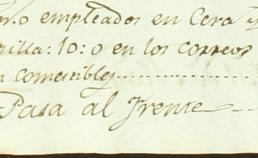 empleados en Cera y
: 10: o en los correos
comesibles
Pasa al Frente